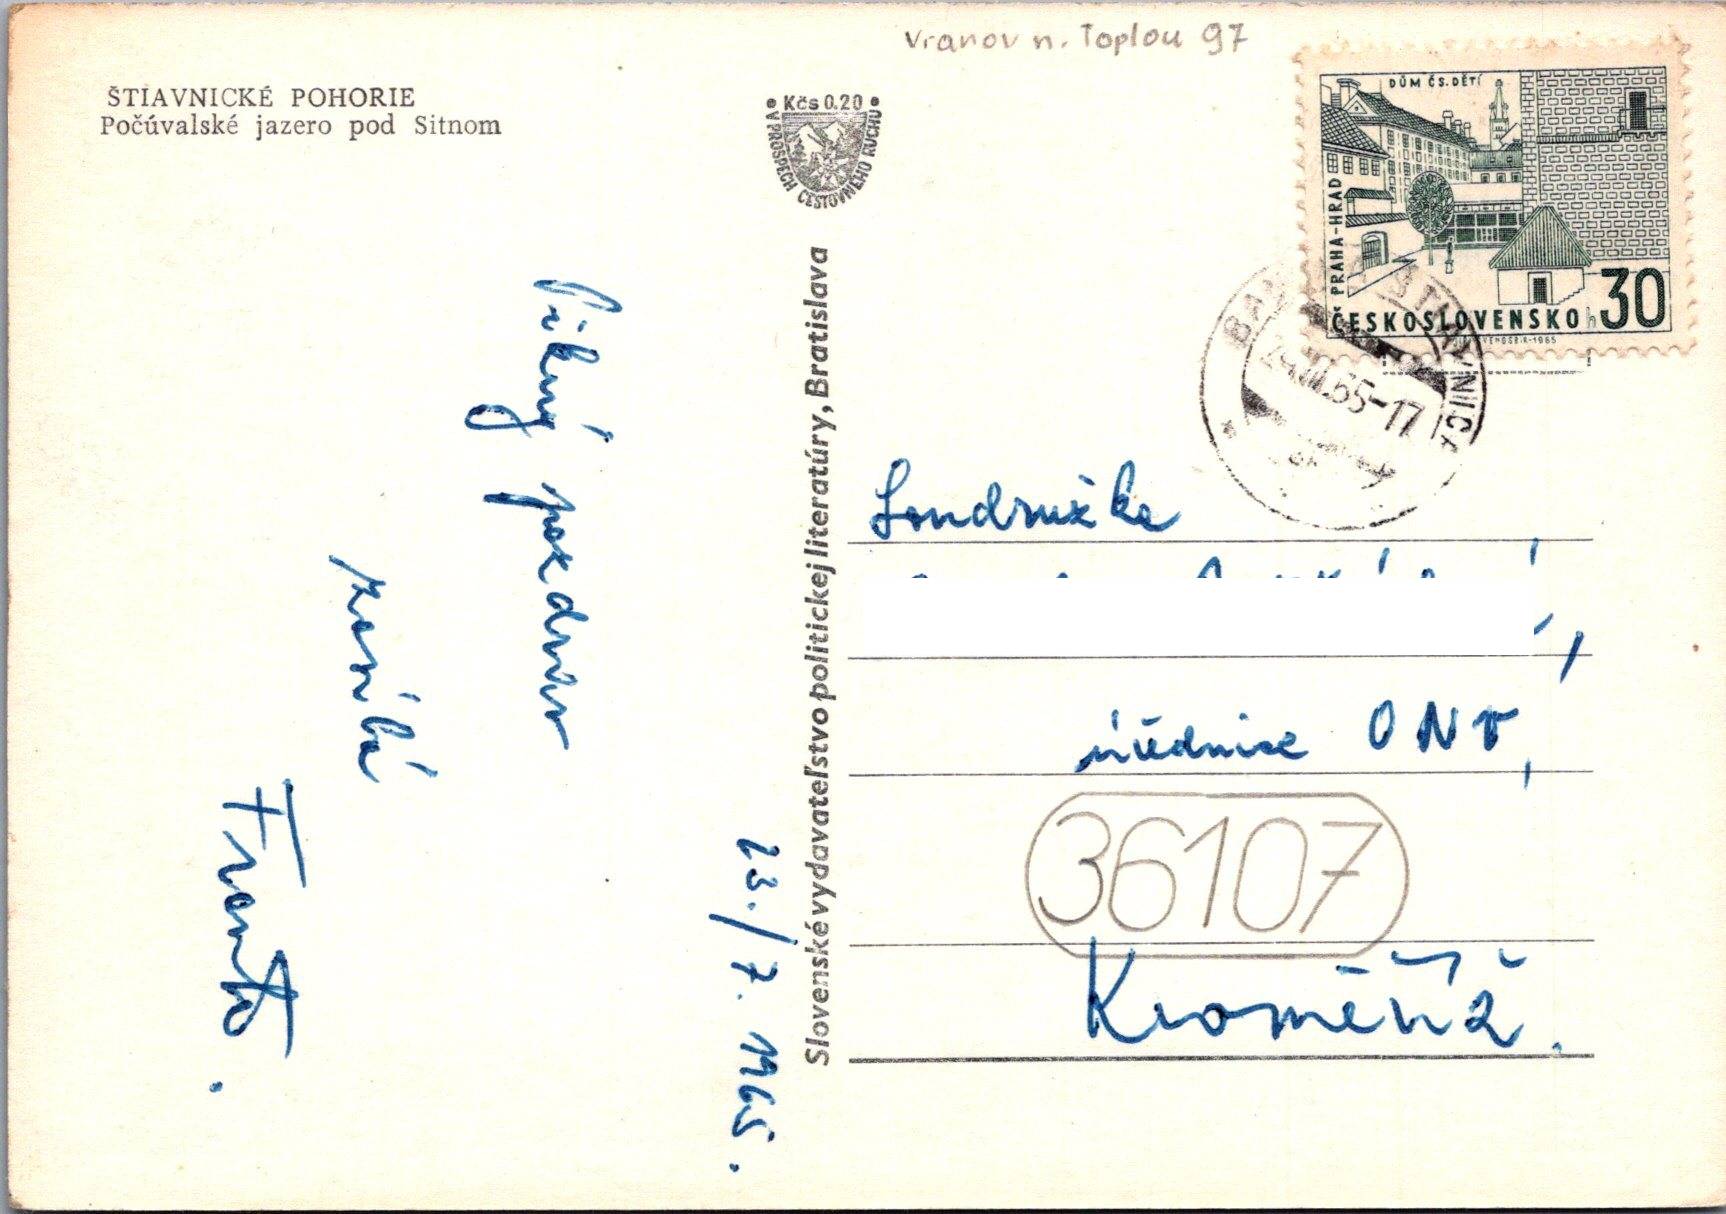 Vranov n. Topľou 97
ŠTIAVNICKÉ POHORIE
Počúvalské jazero pod Sitnom
Kčs 0.20
V PROSPECH CESTOVNÉHO RUCHU
DŮM ČS. DĚTÍ
PRAHA-HRAD
ČESKOSLOVENSKO h 30
BANSKÁ ŠTIAVNICA
24.VII.65-17
Pěkný pozdrav
zasílá
Franta.
23./7. 1965.
Slovenské vydavateľstvo politickej literatúry, Bratislava
Soudružka
úřednice ONV,
36107
Kroměříž.